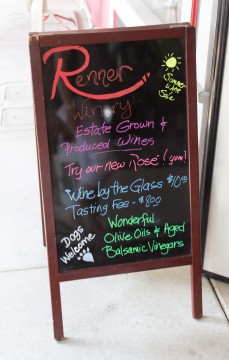 Renner
"Winery"
Summer
Wine
Sale
Estate Grown &
Produced Wines
Try our new Rosé! (yum)
Wine by the Glass $10.00
Tasting Fee - $8.00
Dogs
Welcome
Wonderful
Olive Oils & Aged
Balsamic Vinegars